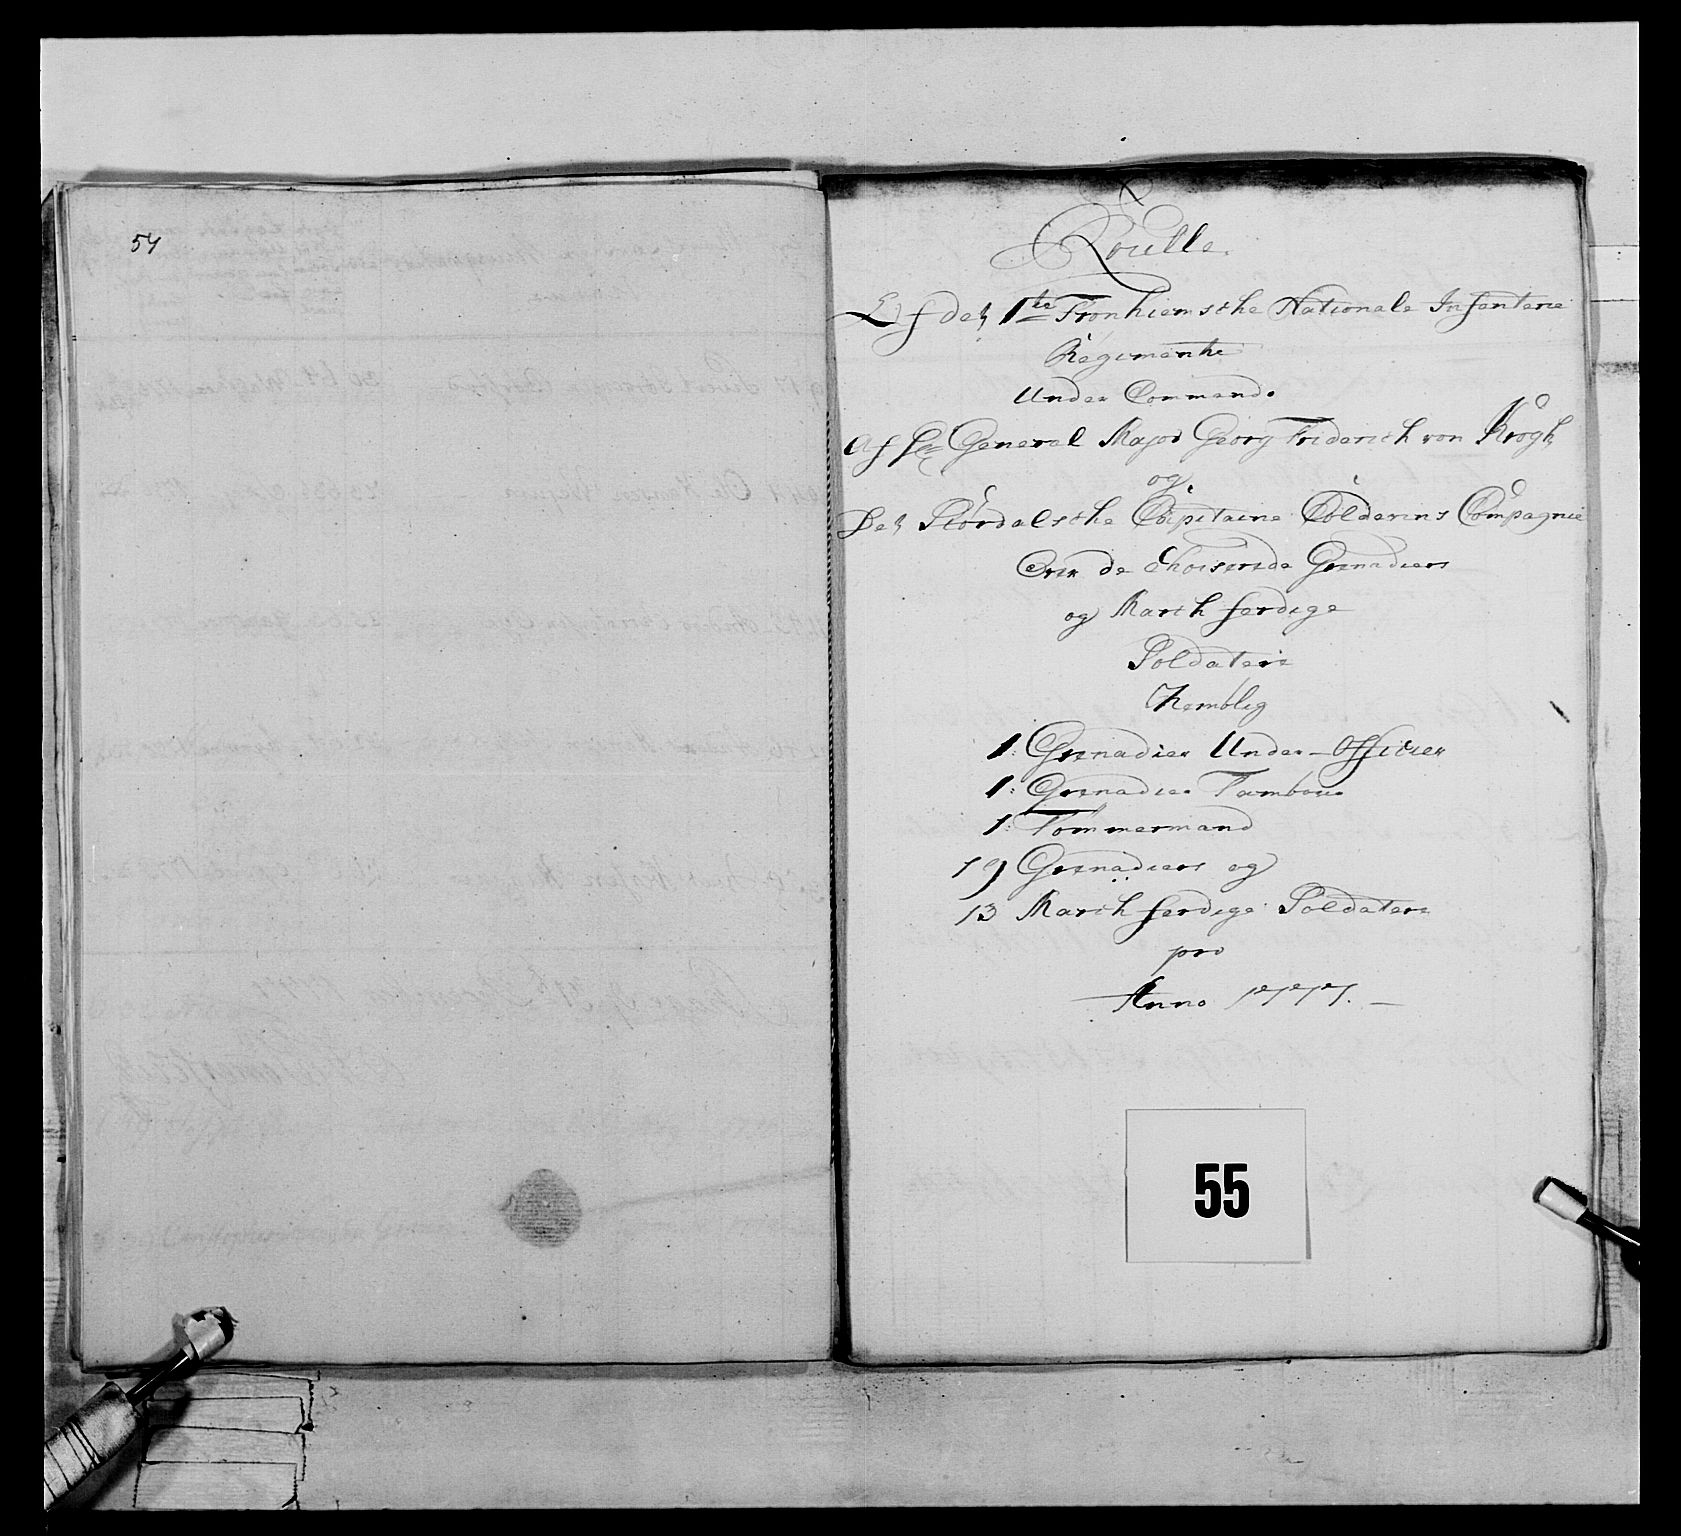 54
Roulle
Af det 1te Tronhiemsche Nationale Infanterie
Regimente
Under Commando
Af Hr General Major Georg Friderich von Krogh
og
Det Størdalsche Capitaine Colderins Compagnie
Over de Choiserede Grenadiers
og Marsch færdige
Soldatere
Nemblig
1: Grenadier Under-Officier
1: Grenadier Tambour
1: Tømmermand
19 Grenadiers og
13 Marsch færdige Soldatere
pro
Anno 1777.
55